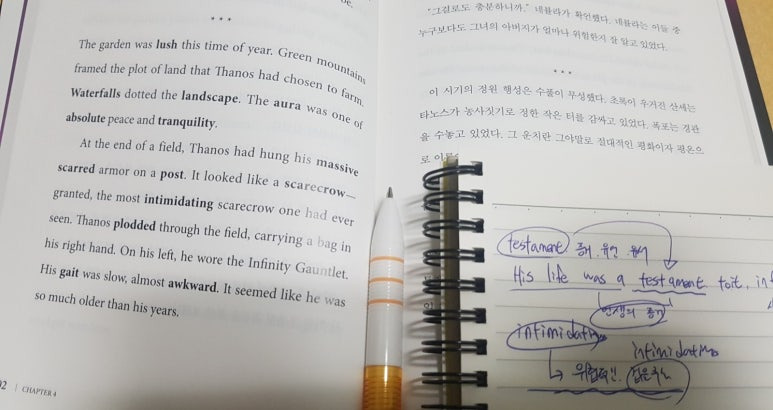 * * *
The garden was lush this time of year. Green mountains
framed the plot of land that Thanos had chosen to farm.
Waterfalls dotted the landscape. The aura was one of
absolute peace and tranquility.
At the end of a field, Thanos had hung his massive
scarred armor on a post. It looked like a scarecrow—
granted, the most intimidating scarecrow one had ever
seen. Thanos plodded through the field, carrying a bag in
his right hand. On his left, he wore the Infinity Gauntlet.
His gait was slow, almost awkward. It seemed like he was
so much older than his years.
CHAPTER 4
"그걸로도 충분하니까." 네뷸라가 확언했다. 네뷸라는 이들 중
누구보다도 그녀의 아버지가 얼마나 위험한지 잘 알고 있었다.
* * *
이 시기의 정원 행성은 수풀이 무성했다. 초록이 우거진 산세는
타노스가 농사짓기로 정한 작은 터를 감싸고 있었다. 폭포는 경관
을 수놓고 있었다. 그 운치란 그야말로 절대적인 평화이자 평온으
로
testament 증거, 유언
His life was a testament to it, in
인생의 증거
intimidating
intimidating
위협적인